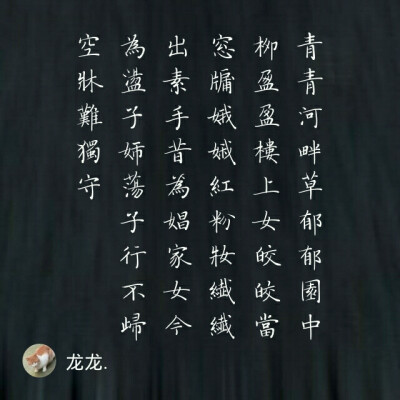 青青河畔草郁郁園中
柳盈盈樓上女皎皎當
窓牖娥娥紅粉妝纖纖
出素手昔為娼家女今
為盪子婦蕩子行不歸
空牀難獨守
龙龙.